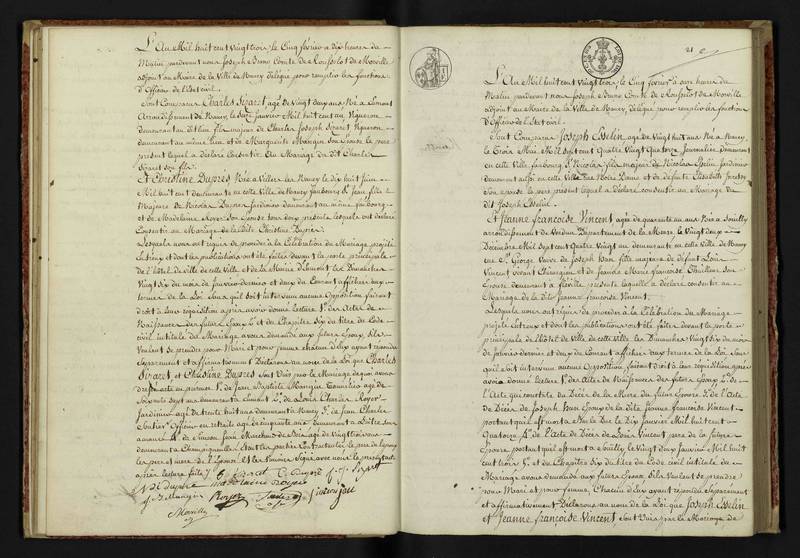 L'An Mil huit cent vingt trois, le Cinq février à dix heures du
Matin pardevant nous Joseph Bruno Comte de Rousselot de Morville
adjoint au Maire de la Ville de Nancy délégué pour remplir les fonctions
d'Officier de l'État civil.
Sont Comparus Charles Sizaret âgé de Vingt deux ans Né à
Arrondissement de Nancy, le Janvier Mil huit cent un Vigneron
demeurant au dit lieu fils majeur de Charles Joseph Sizaret Vigneron
demeurant au même lieu et de Marguerite Mangin son Epouse le père
présent lequel a déclaré consentir au Mariage du dit Charles
Sizaret son fils.
Et Christine Dupres Née à Villers les Nancy le dix huit
Mil huit cent demeurant en cette ville de Nancy faubourg St Jean fille
Majeure de Nicolas Dupres Jardinier demeurant au même faubourg
et de Madelaine Royer son Epouse tous deux présents lesquels ont déclaré
Consentir au Mariage de la dite Christine Dupres.
Lesquels nous ont requis de procéder à la Célébration du Mariage projeté
entre eux et dont les publications ont été faites devant la porte principale
de l'hôtel de ville de cette ville et de la Mairie les Dimanches
Vingt six du mois de Janvier dernier et deux du Courant affichées aux
termes de la Loi sans qu'il soit intervenu aucune Opposition faisant
droit à leur réquisition après avoir donné lecture 1° des Actes de
Naissance des futurs Epoux 2° et du Chapitre Six du titre du Code
civil intitulé du Mariage avons demandé aux futurs Epoux s'ils
veulent se prendre pour Mari et pour femme chacun d'eux ayant répondu
Séparément et affirmativement Déclarons au nom de la Loi que Charles
Sizaret et Christine Dupres sont Unis par le Mariage de quoi avons
dressé acte en présence 1° de Jean Baptiste Mangin Tonnelier âgé de
Soixante Sept ans demeurant à 2° de Louis Charles Royer
Jardinier âgé de trente huit ans demeurant à Nancy 3° de Jean Charles
Officier en retraite âgé de cinquante ans demeurant à
Marchand de Bois âgé de Vingt trois ans
demeurant à Champigneulles
les père et mère de l'Epouse et les témoins Signé avec nous le présent acte
après lecture faite
Dupré
Madelaine Royer
Royer
Morville
21
L'An Mil huit cent vingt trois, le Cinq février à onze heures du
Matin pardevant nous Joseph Bruno Comte de Rousselot de Morville
adjoint au Maire de la Ville de Nancy, délégué pour remplir les fonctions
d'Officier de l'État civil.
Sont Comparus Joseph Esselin, âgé de Vingt huit ans Né à Nancy,
le Trois Mai Mil Sept cent Quatre Vingt Quatorze, Journalier, Demeurant
en cette Ville, faubourg St Nicolas fils majeur de Nicolas Esselin Jardinier
demeurant aussi en cette Ville, rue Notre Dame et de défunte Elisabeth
Son épouse le père présent lequel a déclaré consentir au Mariage du
dit Joseph Esselin.
Et Jeanne françoise Vincent âgée de quarante un ans Née à Souilly
arrondissement de Verdun Département de la Meuse, le Vingt deux
Décembre Mil Sept cent Quatre Vingt un demeurante en cette Ville de Nancy
rue St George Veuve de Joseph fille majeure de défunt Louis
Vincent vivant Chirurgien et de Jeanne Marie françoise son
Epouse demeurant à fléville présente laquelle a déclaré consentir au
Mariage de la dite Jeanne françoise Vincent.
Lesquels nous ont requis de procéder à la Célébration du Mariage
projeté entre eux et dont les publications ont été faites devant la porte
principale de l'Hôtel de Ville de cette ville les Dimanches Vingt Six du mois
de Janvier dernier et deux du Courant affichées aux termes de la Loi Sans
qu'il soit intervenu aucune Opposition, faisant droit à leur réquisition après
avoir donné lecture 1° des Actes de Naissance des futurs Epoux 2° de
l'Acte qui constate le Décès de la Mère du futur Epoux 3° de l'Acte
de Décès de Joseph Epoux de la dite Jeanne françoise Vincent
portant qu'il est mort à Bar le Duc le Dix Janvier Mil huit cent
Quatorze 4° de l'Acte de Décès de Louis Vincent père de la future
Epouse, portant qu'il est mort à Souilly le Vingt deux Janvier Mil huit
cent trois 5° et du Chapitre Six du titre du Code civil intitulé du
Mariage avons demandé aux futurs Epoux S'ils Veulent se prendre
pour Mari et pour femme, Chacun d'eux ayant répondu Séparément
et affirmativement Déclarons au nom de la Loi que Joseph Esselin
et Jeanne françoise Vincent sont Unis par le Mariage de